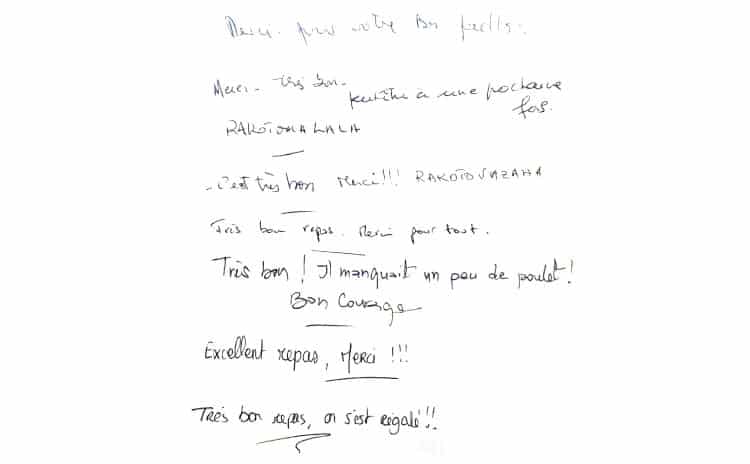 Merci pour votre bon
Merci - très bon -
peut être à une prochaine
fois.
RAKOTOMALALA
- C'est très bon Merci!!! RAKOTOVAZAHA
Très bon repas. Merci pour tout.
Très bon ! Il manquait un peu de poulet !
Bon Courage
Excellent repas, Merci !!!
Très bon repas, on s'est régalé!!